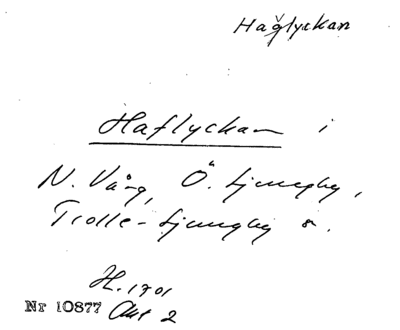 Hağlyckan
Haflyckan i
N. Vång, Ö. Ljungby,
Trolle-Ljungby s.
H. 1701
Nr 10877 Akt 2